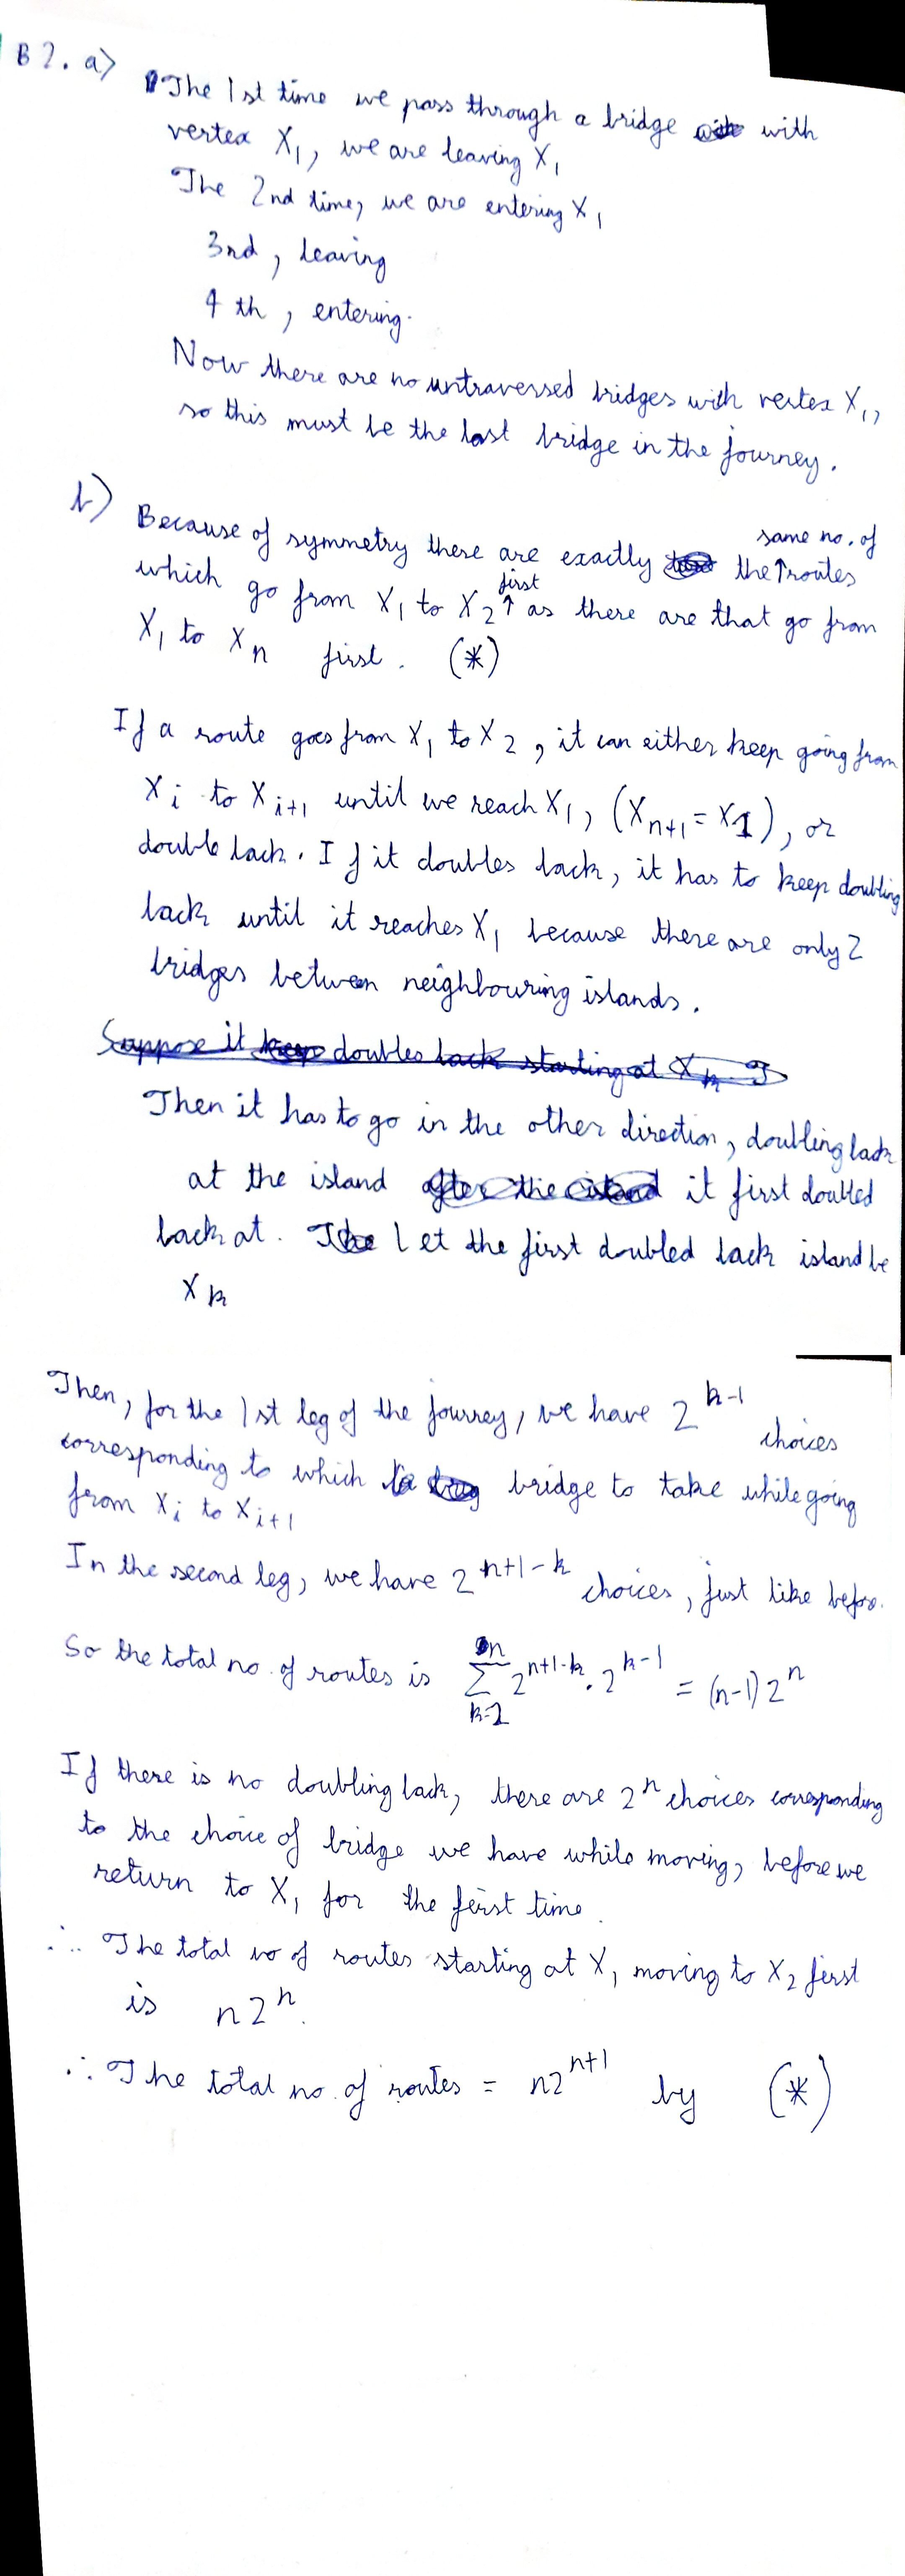 B2. a)
The 1st time we pass through a bridge with
vertex X₁, we are leaving X₁
The 2nd time, we are entering X₁
3nd, leaving
4th, entering.
Now there are no untraversed bridges with vertex X₁,
so this must be the last bridge in the journey.
b) Because of symmetry there are exactly the same no. of routes
which go from X₁ to X₂ first as there are that go from
X₁ to Xₙ first. (*)
If a route goes from X₁ to X₂, it can either keep going from
Xᵢ to Xᵢ₊₁ until we reach X₁, (Xₙ₊₁ = X1), or
double back. If it doubles back, it has to keep doubling
back until it reaches X₁ because there are only 2
bridges between neighbouring islands.
Suppose it keep doubles back starting at Xₖ.
Then it has to go in the other direction, doubling back
at the island after the island it first doubled
back at. Let the first doubled back island be
Xₖ
Then, for the 1st leg of the journey, we have 2^{k-1} choices
corresponding to which bridge to take while going
from Xᵢ to Xᵢ₊₁
In the second leg, we have 2^{n+1-k} choices, just like before.
So the total no. of routes is ∑_{k=2}^{n} 2^{n+1-k} . 2^{k-1} = (n-1)2ⁿ
If there is no doubling back, there are 2ⁿ choices corresponding
to the choice of bridge we have while moving, before we
return to X₁ for the first time.
∴ The total no of routes starting at X₁ moving to X₂ first
is n2ⁿ.
∴ The total no. of routes = n2^{n+1} by (*)